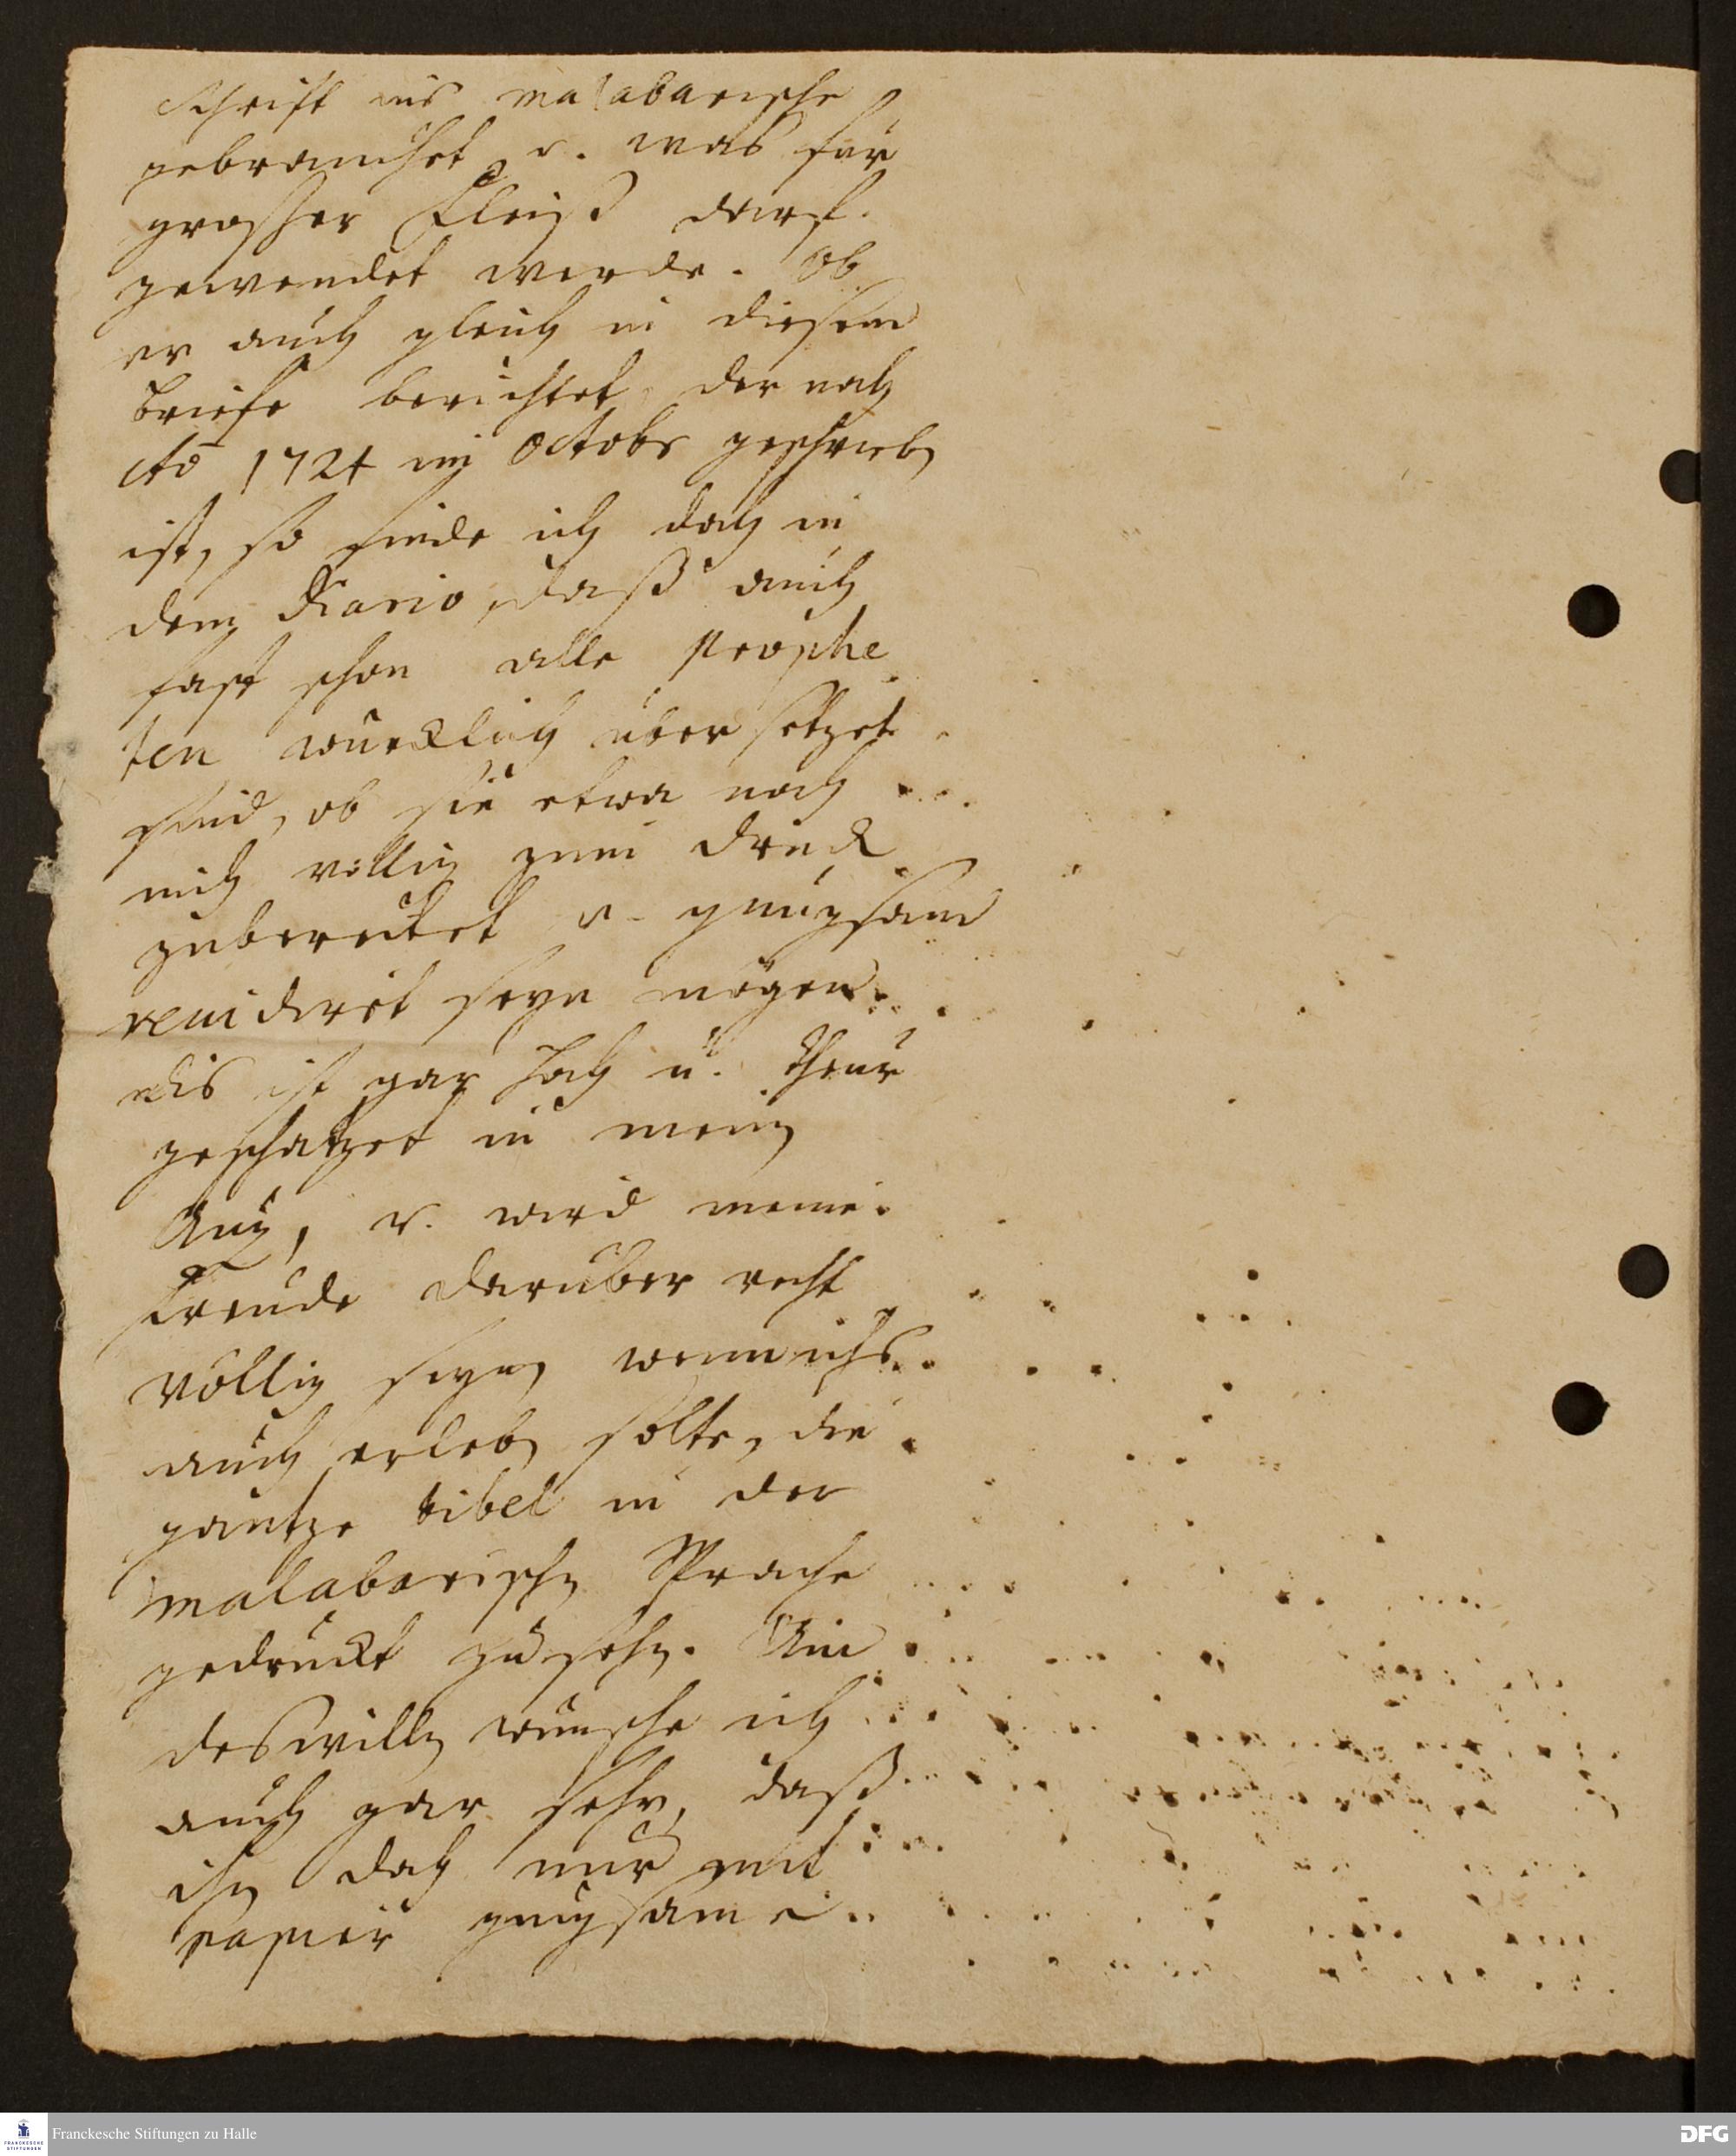 Schrifft ins malabarische
gebrauchet u. was für
grosser Fleiß darauf
gewendet werde. Ob
er auch gleich in diesem
briefe berichtet, der noch
Aõ 1724 im Octobr geschrieben
ist, so finde ich doch in
dem Diario, daß auch
fast schon alle Prophe
ten würcklich übersetzet
sind, ob sie etwa noch
nicht völlig zum Druck
zubereitet u. gnugsam
revidiret seyn mögen.
dis ist gar hoch u. theur
geschätzet in meinen
Augen, u. wird meine
Freude darüber recht
völlig seyn, wenn ichs
auch erleben solte, die
gantze bibel in der
malabarischen Sprache
gedruckt zu sehen. Um
deswillen wünsche ich
auch gar sehr, daß
ihnen doch nur mit
Papier gnugsame
Franckesche Stiftungen zu Halle
FRANCKESCHE STIFTUNGEN
DFG